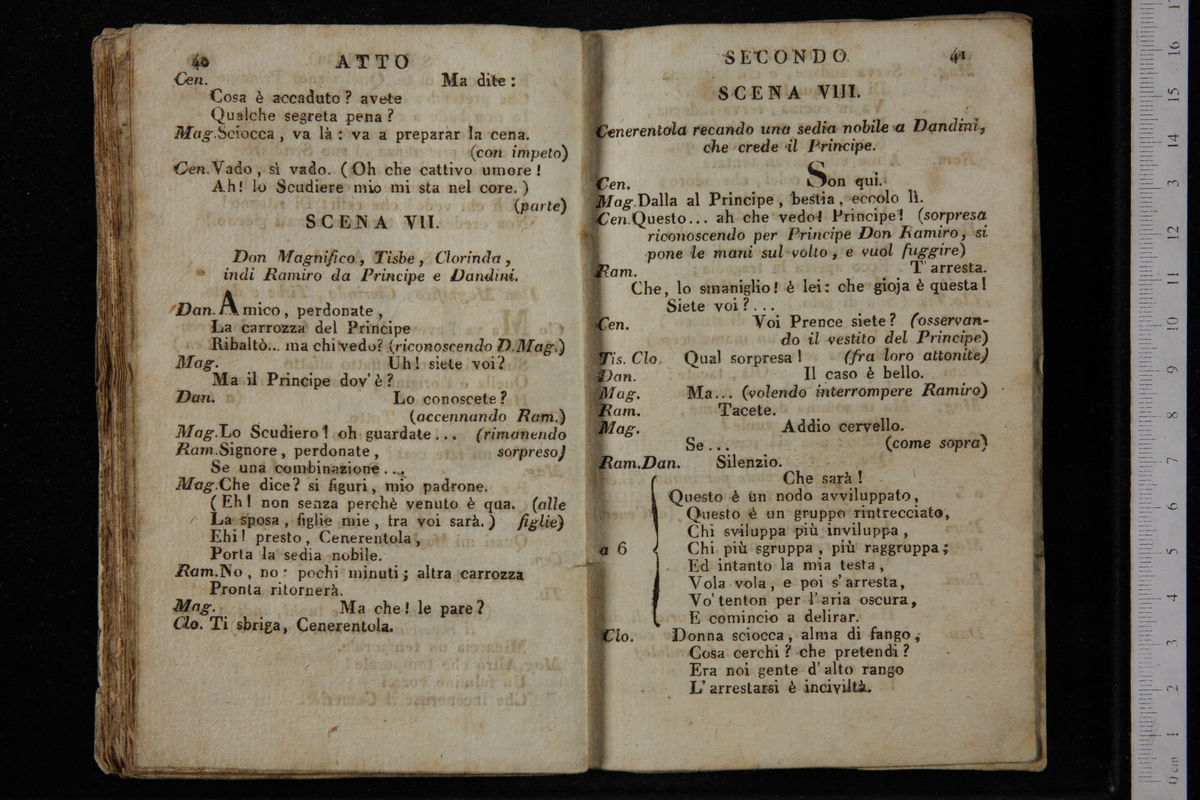 40 ATTO
Cen. Ma dite:
Cosa è accaduto? avete
Qualche segreta pena?
Mag. Sciocca, va là: va a preparar la cena.
(con impeto)
Cen. Vado, sì vado. (Oh che cattivo umore!
Ah! lo Scudiere mio mi sta nel core.)
(parte)
SCENA VII.
Don Magnifico, Tisbe, Clorinda,
indi Ramiro da Principe e Dandini.
Dan. Amico, perdonate,
La carrozza del Principe
Ribaltò... ma chi vedo? (riconoscendo D. Mag.)
Mag. Uh! siete voi?
Ma il Principe dov'è?
Dan. Lo conoscete?
(accennando Ram.)
Mag. Lo Scudiero! oh guardate... (rimanendo
Ram. Signore, perdonate, sorpreso)
Se una combinazione...
Mag. Che dice? si figuri, mio padrone.
(Eh! non senza perchè venuto è qua. (alle
La sposa, figlie mie, tra voi sarà.) figlie)
Ehi! presto, Cenerentola,
Porta la sedia nobile.
Ram. No, no: pochi minuti; altra carrozza
Pronta ritornerà.
Mag. Ma che! le pare?
Clo. Ti sbriga, Cenerentola.
SECONDO. 41
SCENA VIII.
Cenerentola recando una sedia nobile a Dandini,
che crede il Principe.
Cen. Son qui.
Mag. Dalla al Principe, bestia, eccolo lì.
Cen. Questo... ah che vedo! Principe! (sorpresa
riconoscendo per Principe Don Ramiro, si
pone le mani sul volto, e vuol fuggire)
Ram. T'arresta.
Che, lo smaniglio! è lei: che gioja è questa!
Siete voi?...
Cen. Voi Prence siete? (osservan-
do il vestito del Principe)
Tis. Clo. Qual sorpresa! (fra loro attonite)
Dan. Il caso è bello.
Mag. Ma... (volendo interrompere Ramiro)
Ram. Tacete.
Mag. Addio cervello.
Se... (come sopra)
Ram. Dan. Silenzio.
Che sarà!
Questo è un nodo avviluppato,
Questo è un gruppo rintrecciato,
Chi sviluppa più inviluppa,
a 6 Chi più sgruppa, più raggruppa;
Ed intanto la mia testa,
Vola vola, e poi s'arresta,
Vo' tenton per l'aria oscura,
E comincio a delirar.
Clo. Donna sciocca, alma di fango,
Cosa cerchi? che pretendi?
Era noi gente d'alto rango
L'arrestarsi è inciviltà.
0 cm 1 2 3 4 5 6 7 8 9 10 11 12 13 14 15 16 17